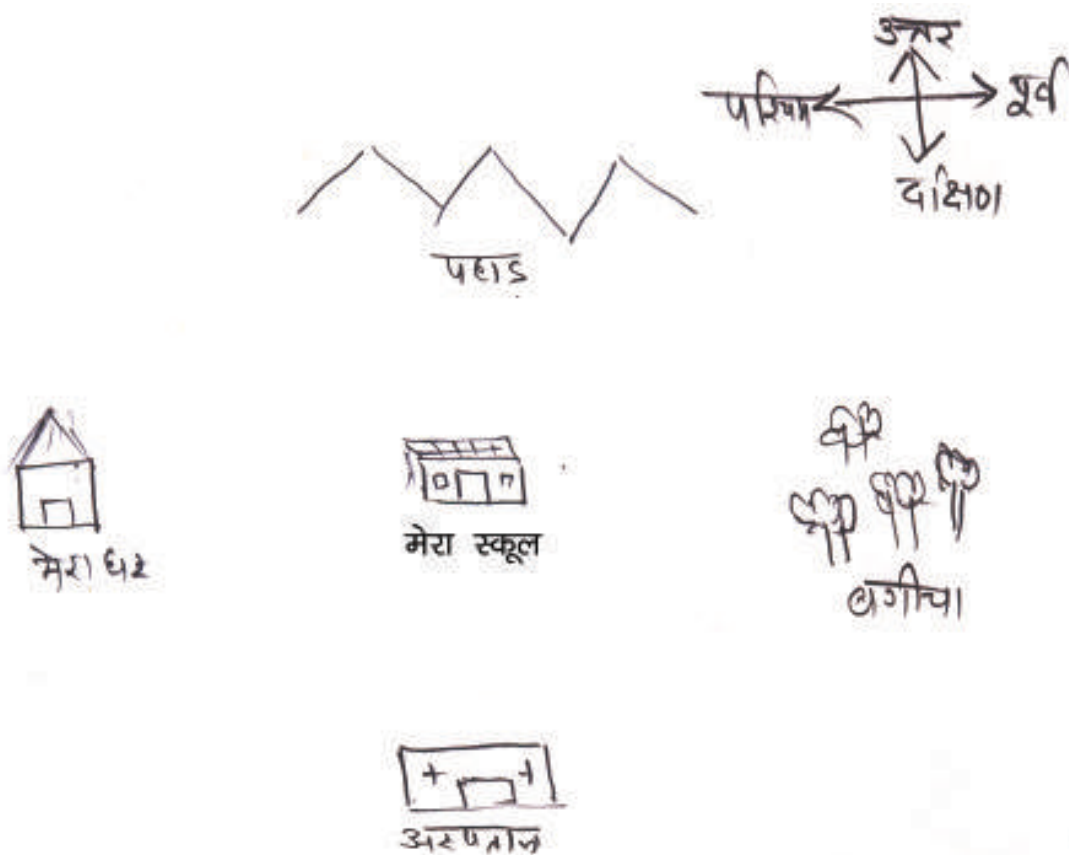 उत्तर
पश्चिम
पूर्व
दक्षिण
पहाड
मेरा घर
मेरा स्कूल
बगीचा
अस्पताल